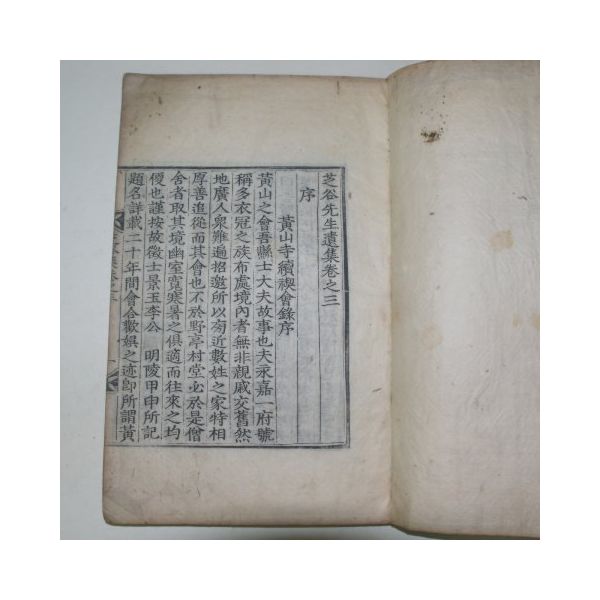 芝谷先生遺集卷之三
序
黃山寺續禊會錄序
黃山之會吾縣士大夫故事也夫永嘉一府號
稱多衣冠之族布處境內者無非親戚交舊然
地廣人衆難遍招邀所以旁近數姓之家特相
厚善追從而其會也不於野亭村堂必於是僧
舍者取其境幽室寬寒暑之俱適而往來之均
便也謹按故徵士景玉李公 明陵甲申所記
題名詳載二十年間會合歡娛之迹卽所謂黃